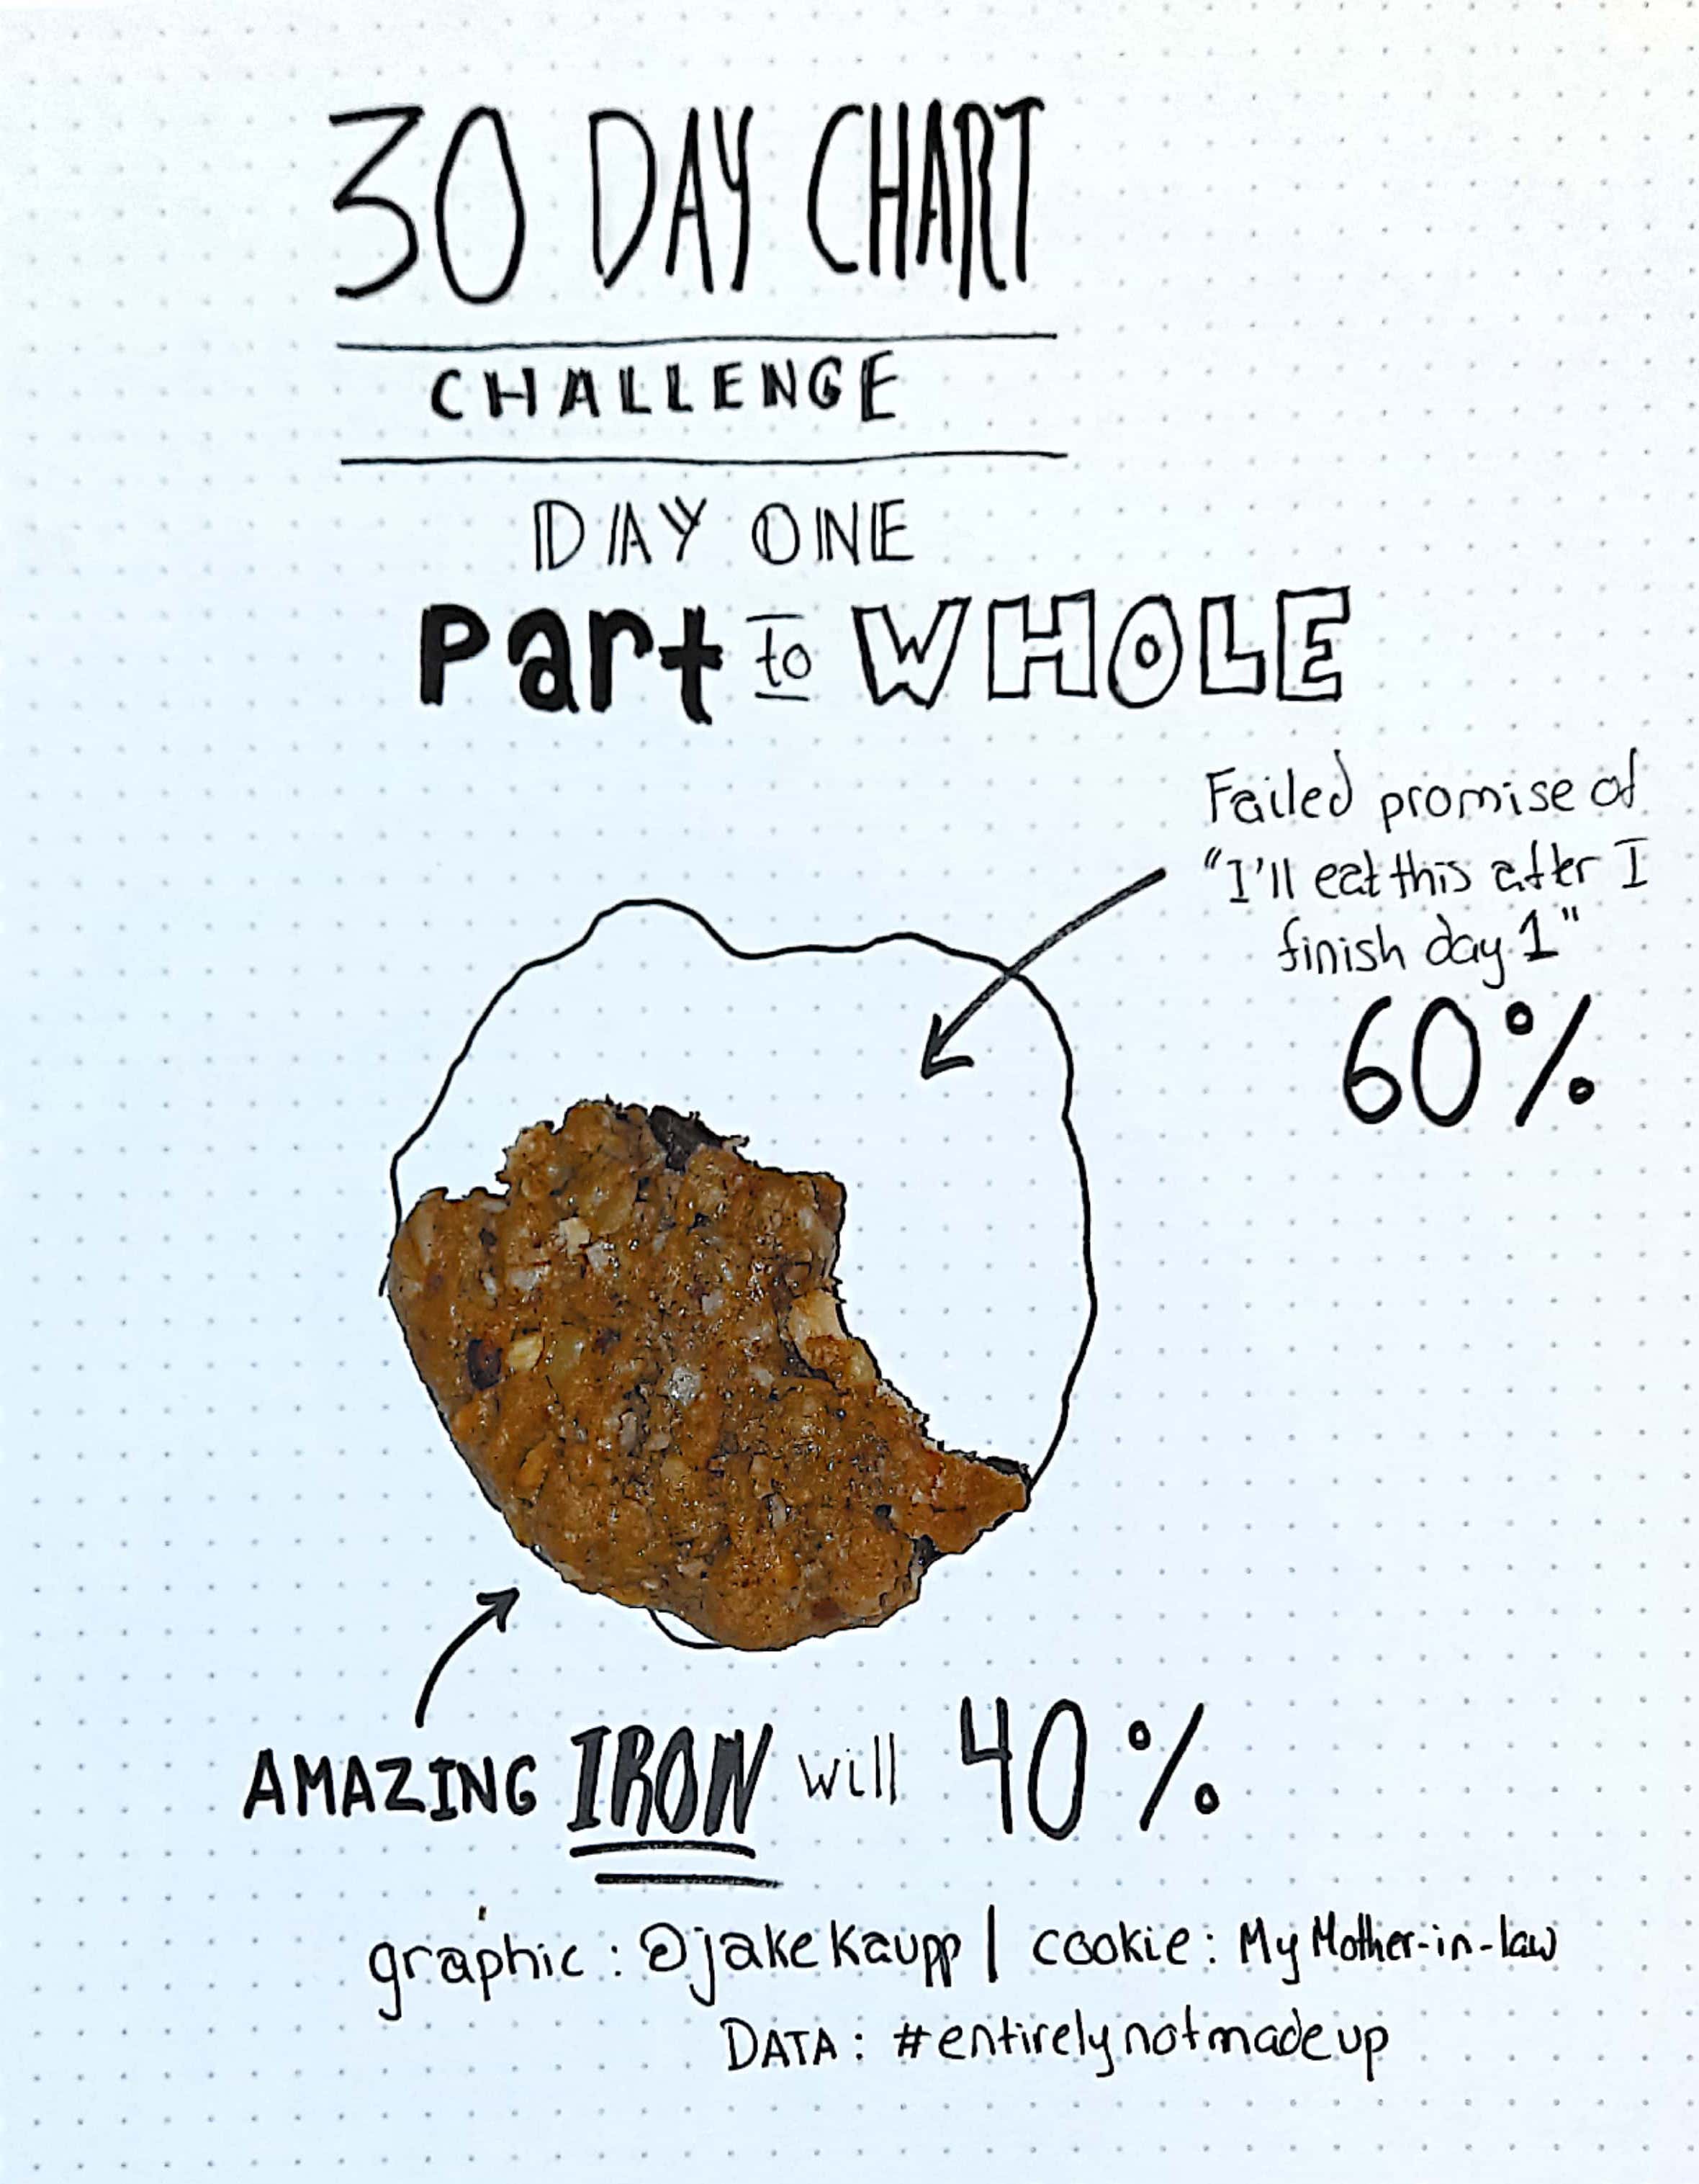 30 DAY CHART
CHALLENGE
DAY ONE
Part to WHOLE
Failed promise of
"I'll eat this after I
finish day 1"
60%
AMAZING IRON will 40%
graphic: @jakekaupp | cookie: My Mother-in-law
DATA: #entirelynotmadeup